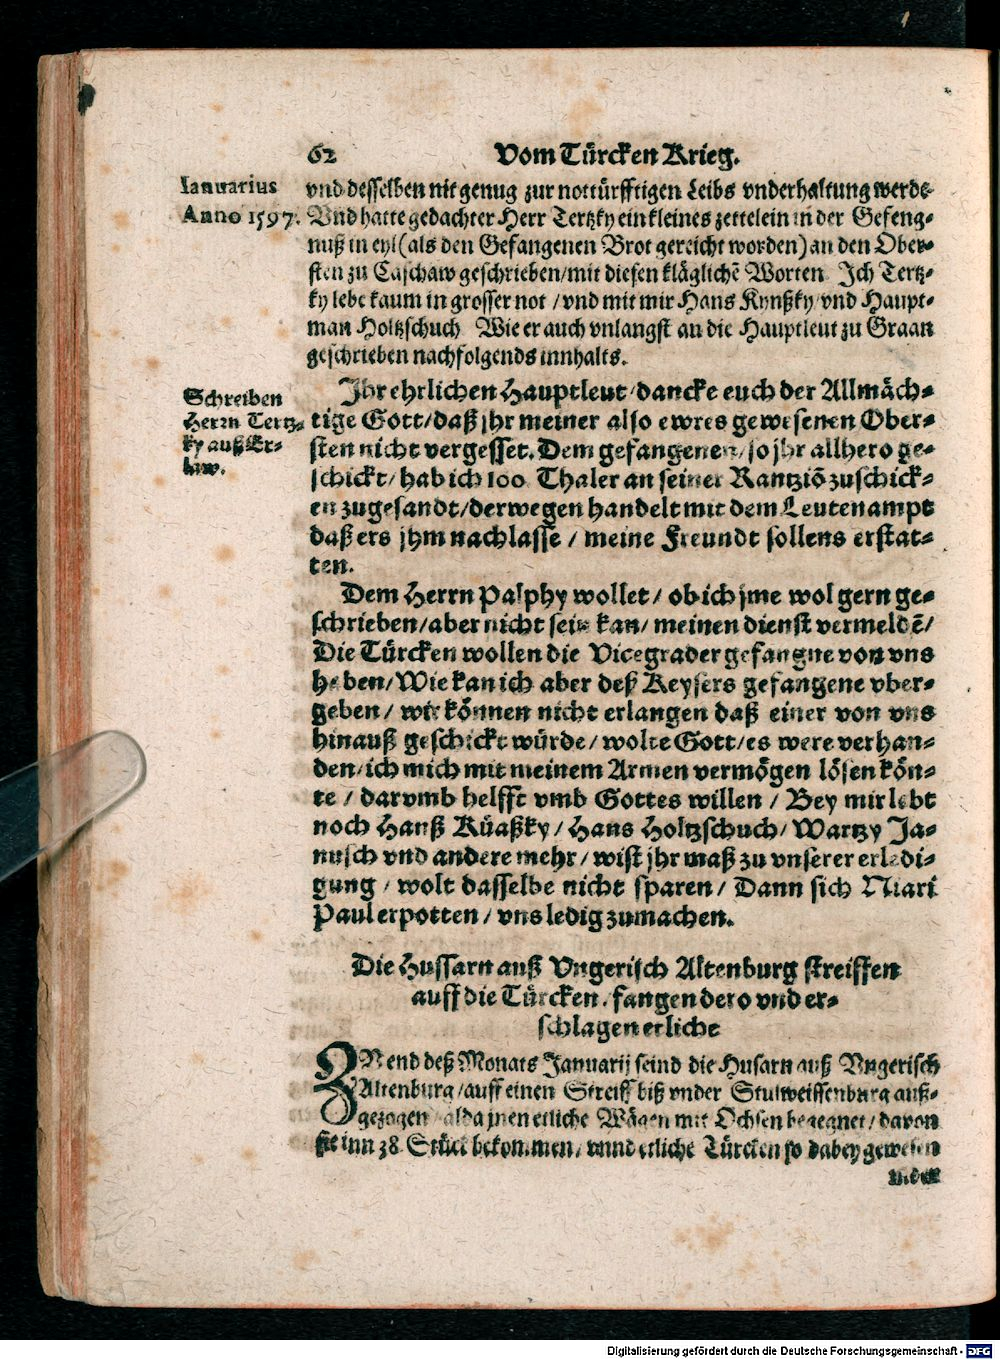 62 Vom Türcken Krieg.
Ianuarius
Anno 1597.
vnd desselben nit genug zur nottürfftigen Leibs vnderhaltung werde
Vnd hatte gedachter Herr Tertzky ein kleines zettelein in der Gefeng-
nuß in eyl (als den Gefangenen Brot gereicht worden) an den Ober-
sten zu Caschaw geschrieben/ mit diesen kläglichẽ Worten. Ich Tertz-
ky lebe kaum in grosser not / vnd mit mir Hans Kynßky/ vnd Haupt-
man Holtzschuch Wie er auch vnlangst an die Hauptleut zu Graan
geschrieben nachfolgends innhalts.
Schreiben
Herrn Tertz-
ky auß Er-
law.
Ihr ehrlichen Hauptleut/ dancke euch der Allmäch-
tige Gott/ daß jhr meiner also ewres gewesenen Ober-
sten nicht vergesset. Dem gefangenen/ so jhr allhero ge-
schickt/ hab ich 100 Thaler an seiner Rantziõ zuschick-
en zugesandt/ derwegen handelt mit dem Leutenampt
daß ers jhm nachlasse / meine Freundt sollens erstat-
ten.
Dem Herrn Palphy wollet/ ob ich jme wol gern ge-
schrieben/ aber nicht sein kan/ meinen dienst vermeldẽ/
Die Türcken wollen die Vicegrader gefangne von vns
haben/ Wie kan ich aber deß Keysers gefangene vber-
geben / wir können nicht erlangen daß einer von vns
hinauß geschickt würde/ wolte Gott/ es were verhan-
den/ ich mich mit meinem Armen vermögen lösen kön-
te / darvmb helfft vmb Gottes willen / Bey mir lebt
noch Hanß Küaßky/ Hans Holtzschuch/ Wartzy Ja-
nusch vnd andere mehr/ wist jhr maß zu vnserer erledi-
gung / wolt dasselbe nicht sparen/ Dann sich Niari
Paul erpotten / vns ledig zumachen.
Die Hussarn auß Vngerisch Altenburg streiffen
auff die Türcken, fangen dero vnd er-
schlagen etliche
ZV end deß Monats Januarij seind die Husarn auß Vngerisch
Altenburg/ auff einen Streiff biß vnder Stulweissenburg auß-
gezogen/ alda jnen etliche Wägen mit Ochsen begegnet/ davon
sie inn 38 Stück bekommen/ vnnd etliche Türcken so dabey gewesen
Digitalisierung gefördert durch die Deutsche Forschungsgemeinschaft - DFG